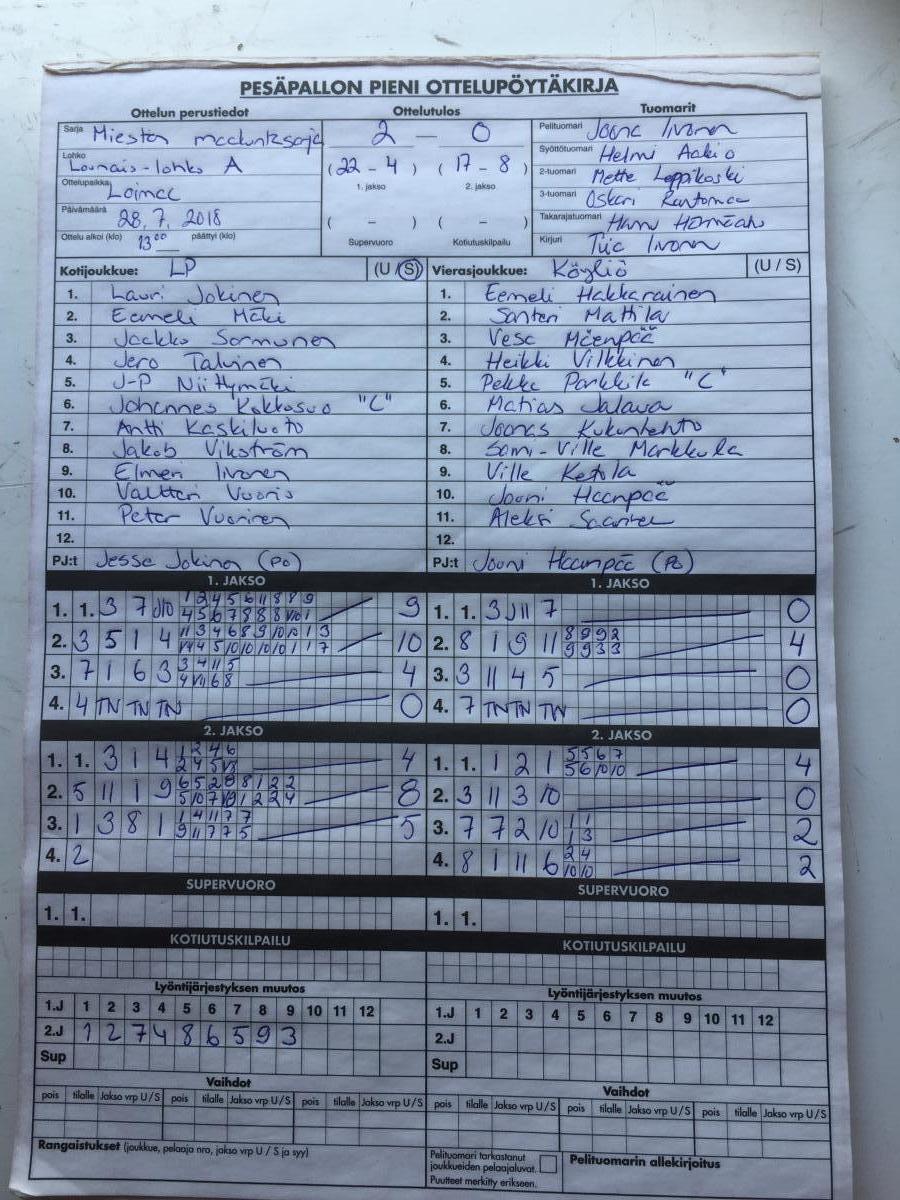 PESÄPALLON PIENI OTTELUPÖYTÄKIRJA
Ottelun perustiedot Ottelutulos Tuomarit
Sarja Miesten maakuntasarja 2 – 0 Pelituomari Joona Iivonen
Lohko Lounais-lohko A (22 – 4) (17 – 8) Syöttötuomari Helmi Aakio
1. jakso 2. jakso 2-tuomari Mette Leppikoski
Ottelupaikka Loimaa 3-tuomari Oskari Rantamaa
Päivämäärä 28.7.2018 ( – ) ( – ) Takarajatuomari Hannu
Ottelu alkoi (klo) 13 00 päättyi (klo) Supervuoro Kotiutuskilpailu Kirjuri Tiia Iivonen
Kotijoukkue: LP (U / S) Vierasjoukkue: Köyliö (U / S)
1. Lauri Jokinen 1. Eemeli Hakkarainen
2. Eemeli Mäki 2. Santeri Mattila
3. Jaakko Sormunen 3. Vesa Mäenpää
4. Jero Talvinen 4. Heikki Vilkkinen
5. J-P Niittymäki 5. Pekka Parkkila "C"
6. Johannes Kokkosuo "C" 6. Matias Jalava
7. Antti Kaskiluoto 7. Joonas Kukunlehto
8. Jakob Vikström 8. Sami-Ville Markkula
9. Elmeri Iivonen 9. Ville Ketola
10. Valtteri Vuorio 10. Jooni Haanpää
11. Peter Vuorinen 11. Aleksi
12. 12.
PJ:t Jesse Jokinen (Po) PJ:t Jouni Haanpää (Po)
1. JAKSO 1. JAKSO
1. 1. 3 7 9 1. 1. 3 11 7 0
2. 3 5 1 4 10 2. 8 1 9 11 8 9 9 2 4
9 9 3 3
3. 7 1 6 3 3 4 11 5 4 3. 3 11 4 5 0
4. 4 TN TN TN 0 4. 7 TN TN TN 0
2. JAKSO 2. JAKSO
1. 1. 3 1 4 1 2 4 6 4 1. 1. 1 2 1 5 5 6 7 4
5 6 10 10
2. 5 11 1 9 8 2. 3 11 3 10 0
3. 1 3 8 1 1 4 11 7 7 5 3. 7 7 2 10 1 1 2
9 11 7 7 5 1 3
4. 2 4. 8 1 11 6 2 4 2
10 10
SUPERVUORO SUPERVUORO
1. 1. 1. 1.
KOTIUTUSKILPAILU KOTIUTUSKILPAILU
Lyöntijärjestyksen muutos Lyöntijärjestyksen muutos
1.J 1 2 3 4 5 6 7 8 9 10 11 12 1.J 1 2 3 4 5 6 7 8 9 10 11 12
2.J 1 2 7 4 8 6 5 9 3 2.J
Sup Sup
Vaihdot Vaihdot
pois tilalle Jakso vrp U/S pois tilalle Jakso vrp U/S pois tilalle Jakso vrp U/S pois tilalle Jakso vrp U/S pois tilalle Jakso vrp U/S pois tilalle Jakso vrp U/S
Rangaistukset (joukkue, pelaaja nro, jakso vrp U / S ja syy) Pelituomari tarkastanut joukkueiden pelaajaluvat. Pelituomarin allekirjoitus
Puutteet merkitty erikseen.